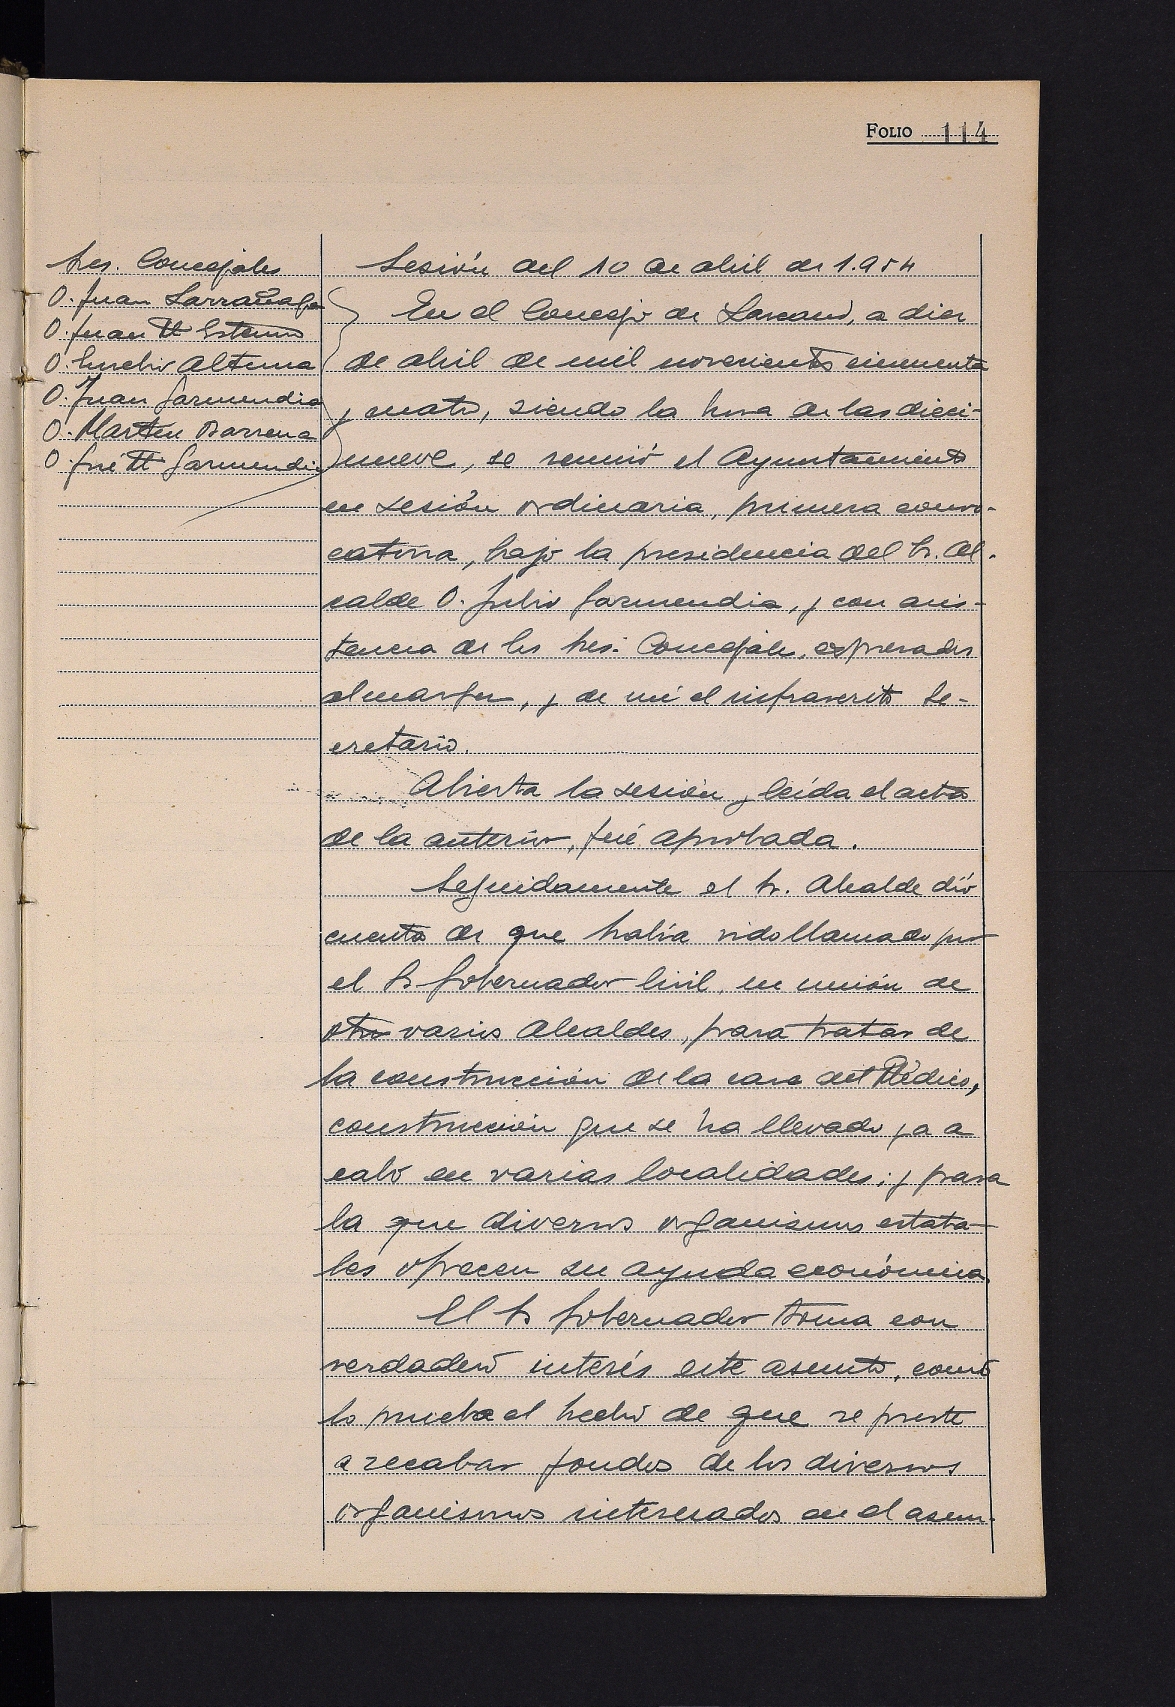 FOLIO 114
Sres. Concejales
D. Juan Larrañaga
D. Juan Mª Estensoro
D. Eusebio Altuna
D. Juan Garmendia
D. Martin Barrena
D. José Mª Garmendia
Sesión del 10 de abril de 1.954
En el Concejo de Lazcano, a diez
de abril de mil novecientos cincuenta
y cuatro, siendo la hora de las dieci-
nueve, se reunió el Ayuntamiento
en sesión ordinaria, primera convo-
catoria, bajo la presidencia del Sr. Al-
calde D. Julio Garmendia, y con asis-
tencia de los Sres. Concejales, expresados
al margen, y de mi el infrascrito Se-
cretario.
Abierta la sesión y leída el acta
de la anterior, fué aprobada.
Seguidamente el Sr. Alcalde dió
cuenta de que había sido llamado por
el Sr Gobernador Civil, en unión de
otros varios Alcaldes, para tratar de
la construcción de la casa del Médico,
construcción que se ha llevado ya a
cabo en varias localidades; y para
la que diversos organismos estata-
les ofrecen su ayuda económica.
El Sr Gobernador toma con
verdadero interés este asunto, como
lo prueba el hecho de que se preste
a recabar fondos de los diversos
organismos interesados en el asun-